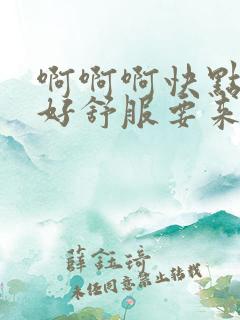 啊啊啊快點
好舒服要來
薛鈺琦
未经同意禁止转载